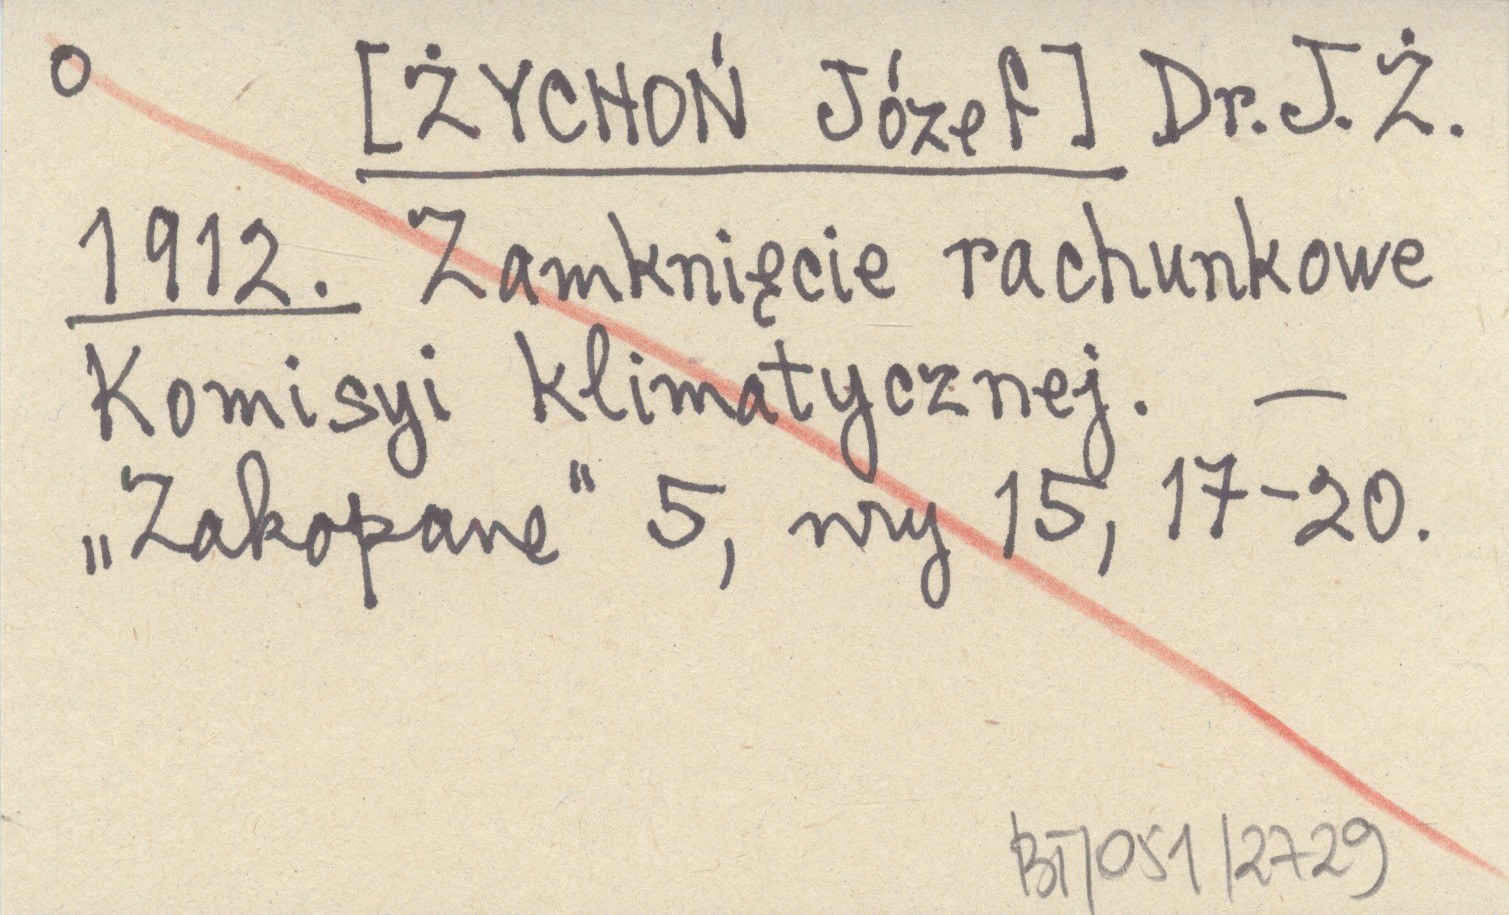 o [ŻYCHOŃ Józef] Dr. J. Ż.
1912. Zamknięcie rachunkowe
Komisyi klimatycznej. —
„Zakopane" 5, nry 15, 17-20.
BT/051/2729